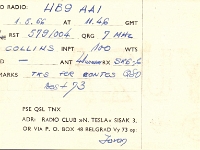 TO RADIO: HB9 AAI
1.5.66 AT 11.46 GMT
RST 579/004 QRG 7 MHz
COLLINS INPT 100 WTS
ANT
REMARKS TKS FOR CONTCS QSO
BEST 73
PSE QSL TNX
ADR: RADIO CLUB »N. TESLA« SISAK 3,
OR VIA P. O. BOX 48 BELGRAD Vy 73 op: